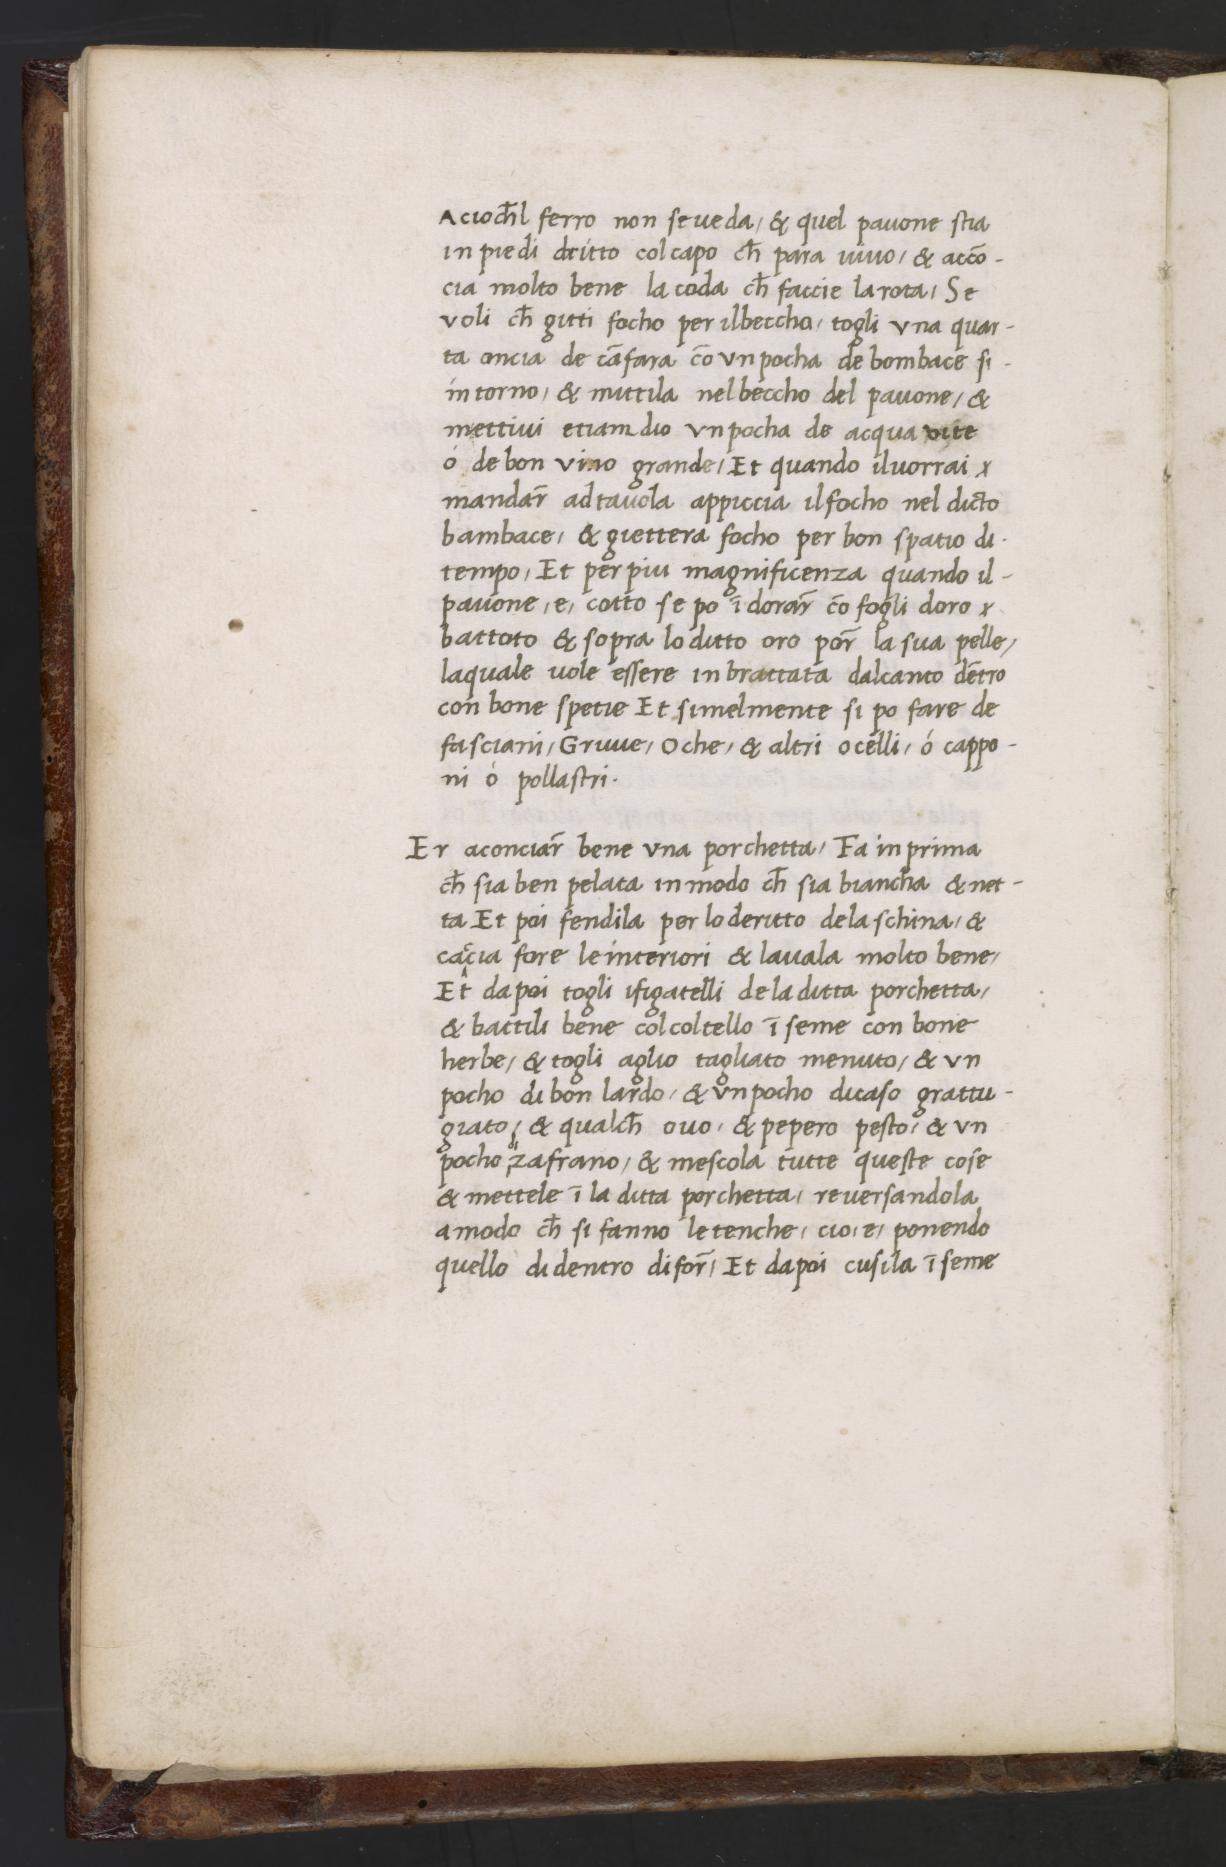 Acioch̄l ferro non se ueda, & quel pauone stia
in piedi dritto col capo ch̄ para uiuo, & accō-
cia molto bene la coda ch̄ faccie la rota, Se
voli ch̄ gitti focho per il beccho, togli vna quar-
ta oncia de cāfara cō vn pocha de bombace si-
intorno, & mittila nel beccho del pauone, &
mettiui etiamdio vn pocha de acqua vite
ó de bon vino grande, Et quando il uorrai x
mandar̄ ad tauola appiccia il focho nel dicto
bambace, & giettera focho per bon spatio di.
tempo, Et per piu magnificenza quando il-
pauone, e, cotto se po ī dorar̄ cō fogli doro x
battoto & sopra lo ditto oro por̄ la sua pelle,
laquale uole essere inbrattata dal canto dētro
con bone spetie Et simelmente si po fare de
fasciani, Gruue, Oche, & altri ocelli, ó cappo-
ni ó pollastri.

Er aconciar̄ bene vna porchetta, Fa in prima
ch̄ sia ben pelata in modo ch̄ sia biancha & net-
ta Et poi fendila per lo deritto de la schina, &
caccia fore le interiori & lauala molto bene,
Et dapoi togli i figatelli de la ditta porchetta,
& battili bene col coltello ī seme con bone
herbe, & togli aglio tagliato menuto, & vn
pocho di bon lardo, & vn pocho di caso grattu-
giato, & qualch̄ ovo, & pepero pesto, & vn
pocho zafrano, & mescola tutte queste cose
& mettele ī la ditta porchetta, reuersandola
a modo ch̄ si fanno le tenche, cio, e, ponendo
quello di dentro di for̄, Et dapoi cusila ī seme